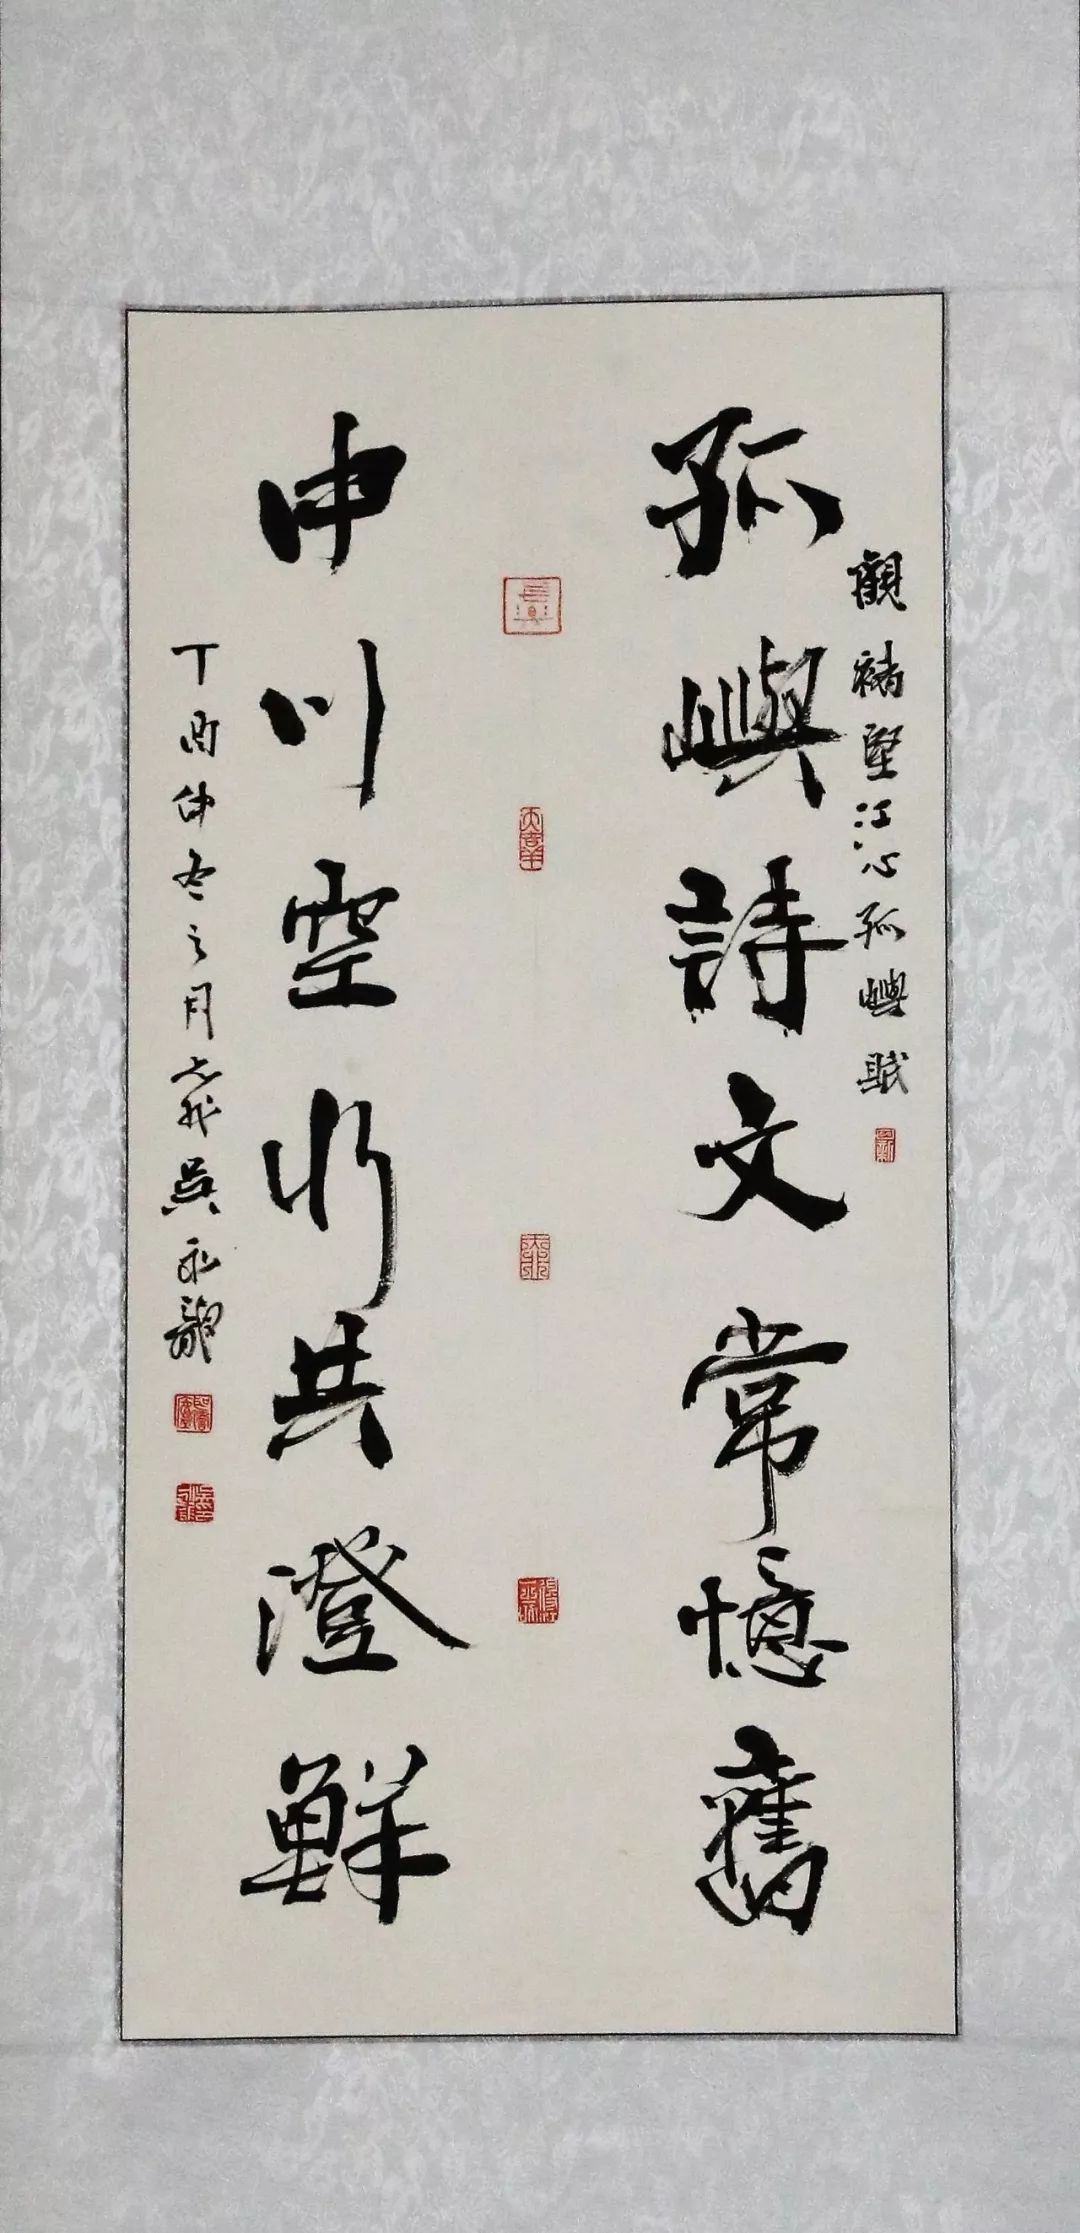 觀褚堅江心孤嶼賦
孤嶼詩文常憶舊
中川空水共澄鮮
丁酉仲冬之月 吳永龍